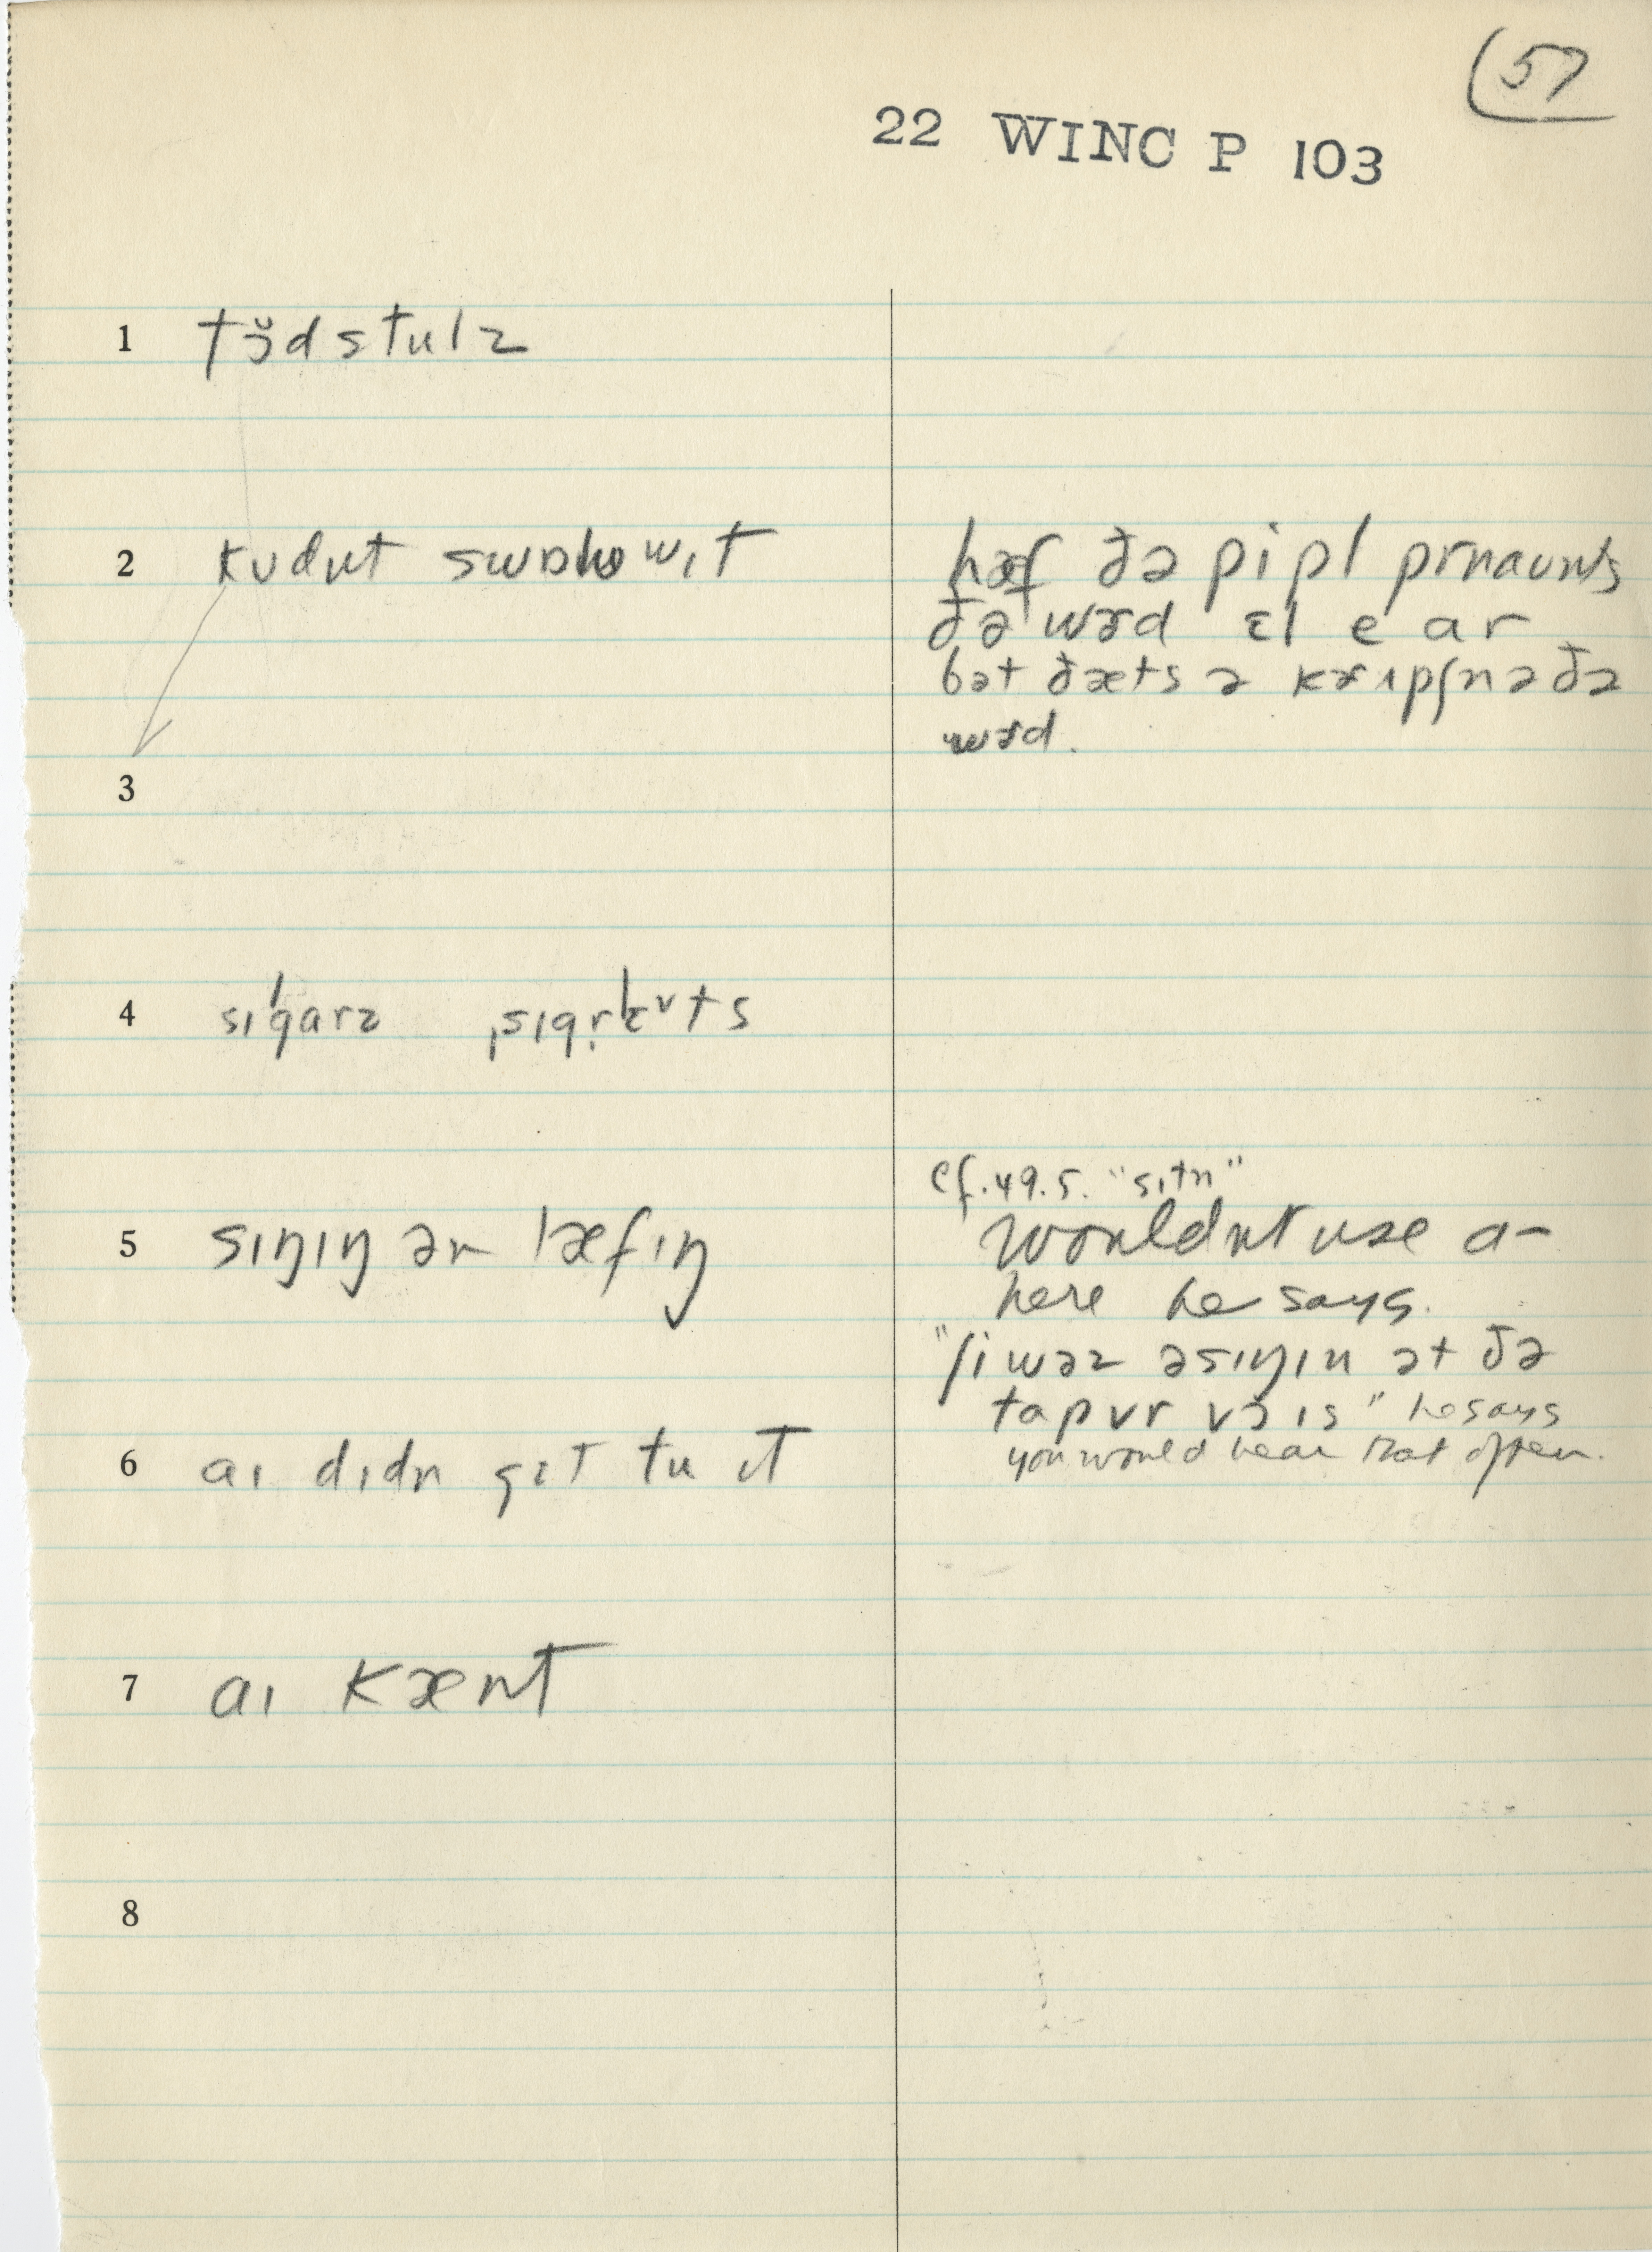 57
22 WINC P 103
1 tɔ̆dstulz
2 kʊdnt
hæf ðə pipl prnaʊnts
ðə wɝd ɛl e ar
bət ðæts ə kɝɪpʃn ə ðə
wɝd.
3
4 sɪ'garz
cf. 49.5. "sɪtn"
5 sɪŋɪŋ ən læfɪŋ
wouldnt use a-
here he says.
"ʃi wəz əsɪŋɪn ət ðə
tap vr vɔɪs" he says
you would hear that often.
6 aɪ dɪdn gɛt tu ɪt
7 aɪ kænt
8